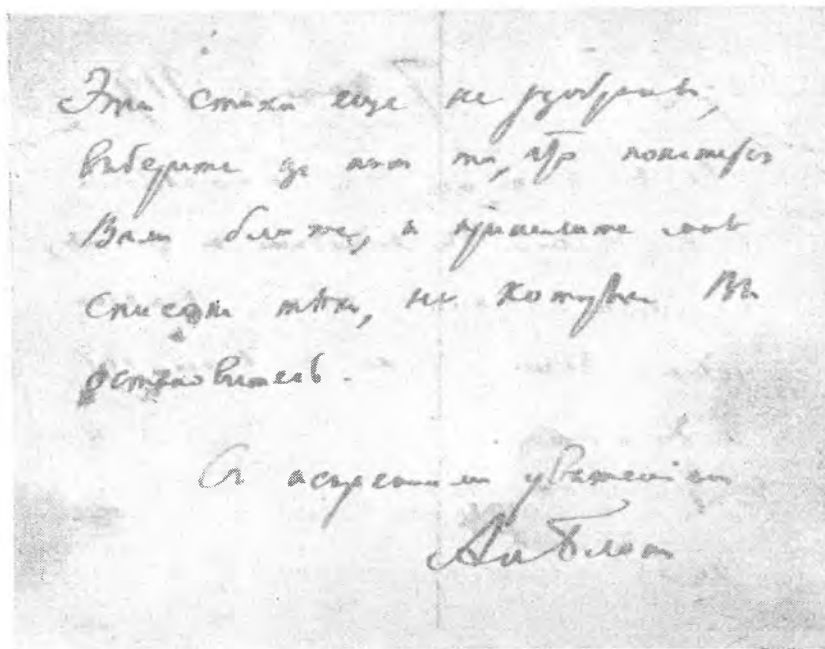 Эти стихи еще не разобраны,
выберите из них те, что покажутся
Вам ближе, и пришлите мне
список тѣхъ, на которых Вы
остановитесь.
С искренним уважением
Ал Блок